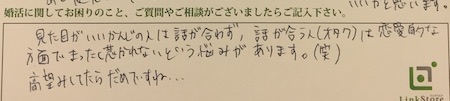 いいかと思います。
婚活に関してお困りのこと、ご質問やご相談がございましたらご記入下さい。
見た目がいいかんじの人は話が合わず、話が合う人(オタク)は恋愛的な
方面でまったく惹かれないという悩みがあります。(笑)
高望みしてたらだめですね…
LinkStore